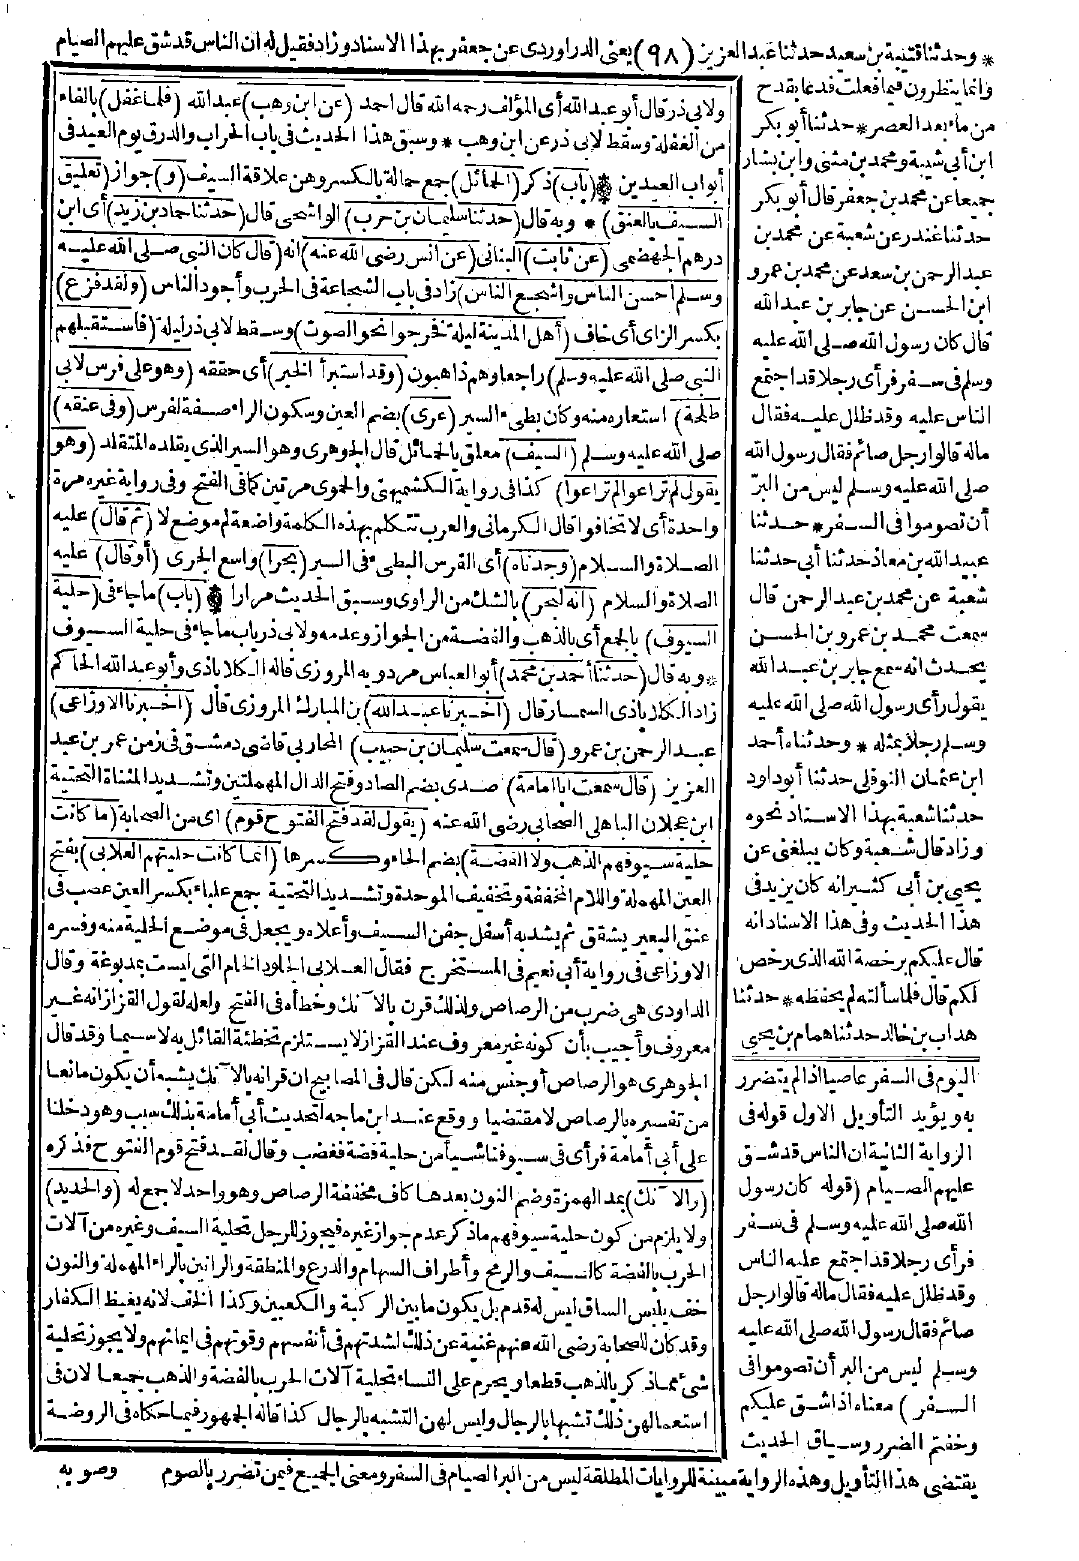 * وحدثنا قتيبة بن سعيد حدثنا عبد العزيز (٩٨) يعنى الدراوردى عن جعفر بهذا الاسناد وزاد فقيل له ان الناس قد شق عليهم الصيام
وانما ينظرون فيما فعلت فدعا بقدح
من ماء بعد العصر * حدثنا أبو بكر
ابن أبي شيبة ومحمد بن مثنى وابن بشار
جميعا عن محمد بن جعفر قال أبو بكر
حدثنا غندر عن شعبة عن محمد بن
عبد الرحمن بن سعد عن محمد بن عمرو
ابن الحسن عن جابر بن عبد الله
قال كان رسول الله صلى الله عليه
وسلم فى سفر فرأى رجلا قد اجتمع
الناس عليه وقد ظلل عليه فقال
ماله قالوا رجل صائم فقال رسول الله
صلى الله عليه وسلم ليس من البرّ
أن تصوموا فى السفر * حدثنا
عبيد الله بن معاذ حدثنا أبي حدثنا
شعبة عن محمد بن عبد الرحمن قال
سمعت محمد بن عمرو بن الحسن
يحدث انه سمع جابر بن عبد الله
يقول رأى رسول الله صلى الله عليه
وسلم رجلا بمثله * وحدثناه أحمد
ابن عثمان النوفلى حدثنا أبو داود
حدثنا شعبة بهذا الاسناد نحوه
وزاد قال شعبة وكان يبلغنى عن
يحيى بن أبى كثير انه كان يزيد فى
هذا الحديث وفى هذا الاسناد انه
قال عليكم برخصة الله الذى رخص
لكم قال فلما سألته لم يحفظه * حدثنا
هداب بن خالد حدثنا همام بن يحيى
اليوم فى السفر عاصيا اذا لم يتضرر
به ويؤيد التأويل الاول قوله فى
الرواية الثانية ان الناس قد شق
عليهم الصيام (قوله كان رسول
الله صلى الله عليه وسلم فى سفر
فرأى رجلا قد اجتمع عليه الناس
وقد ظلل عليه فقال ماله قالوا رجل
صائم فقال رسول الله صلى الله عليه
وسلم ليس من البر أن تصوموا فى
السفر) معناه اذا شق عليكم
وخفتم الضرر وسياق الحديث
ولابى ذر قال أبو عبد الله أى المؤلف رحمه الله قال احمد (عن ابن وهب) عبد الله (فلما غفل) بالفاء
من الغفلة وسقط لابى ذر عن ابن وهب * وسبق هذا الحديث فى باب الحراب والدرق يوم العيد فى
أبواب العيدين * (باب) ذكر (الحمائل) جمع حمالة بالكسر وهى علاقة السيف (و) جواز (تعليق
السيف بالعنق) * وبه قال (حدثنا سليمان بن حرب) الواشحى قال (حدثنا حماد بن زيد) أى ابن
درهم الجهضمى (عن ثابت) البنانى (عن أنس رضى الله عنه) انه (قال كان النبى صلى الله عليه
وسلم احسن الناس واشجع الناس) زاد فى باب الشجاعة فى الحرب وأجود الناس (ولقد فزع)
بكسر الزاى أى خاف (أهل المدينة ليلة فخرجوا نحو الصوت) وسقط لابى ذر ليلة (فاستقبلهم
النبى صلى الله عليه وسلم) راجعا وهم ذاهبون (وقد استبرأ الخبر) أى حققه (وهو على فرس لابى
طلحة) استعاره منه وكان بطىء السير (عرى) بضم العين وسكون الراء صفة لفرس (وفى عنقه)
صلى الله عليه وسلم (السيف) معلق بالحمائل قال الجوهرى وهو السير الذى يقلده المتقلد (وهو
يقول لم تراعوا لم تراعوا) كذا فى رواية الكشميهنى والحموى مرتين كما فى الفتح وفى رواية غيره مرة
واحدة أى لا تخافوا قال الكرمانى والعرب تتكلم بهذه الكلمة واضعة لم موضع لا (ثم قال) عليه
الصلاة والسلام (وجدناه) أى الفرس البطىء فى السير (بحرا) واسع الجرى (أو قال) عليه
الصلاة والسلام (انه لبحر) بالشك من الراوى وسبق الحديث مرارا * (باب) ما جاء فى (حلية
السيوف) بالجمع أى بالذهب والفضة من الجواز وعدمه ولابى ذر باب ما جاء فى حلية السيوف
* وبه قال (حدثنا أحمد بن محمد) أبو العباس مردويه المروزى قاله الكلاباذى وأبو عبد الله الحاكم
زاد الكلاباذى السمسار قال (اخبرنا عبد الله) بن المبارك المروزى قال (اخبرنا الاوزاعى)
عبد الرحمن بن عمرو (قال سمعت سليمان بن حبيب) المحاربى قاضى دمشق فى زمن عمر بن عبد
العزيز (قال سمعت ابا امامة) صدى بضم الصاد وفتح الدال المهملتين وتشديد المثناة التحتية
ابن عجلان الباهلى الصحابى رضى الله عنه (يقول لقد فتح الفتوح قوم) اى من الصحابة (ما كانت
حلية سيوفهم الذهب ولا الفضة) بضم الحاء وكسرها (انما كانت حليتهم العلابى) بفتح
العين المهملة واللام المخففة وتخفيف الموحدة وتشديد التحتية جمع علباء بكسر العين عصب فى
عنق البعير يشقق ثم يشد به أسفل جفن السيف وأعلاه ويجعل فى موضع الحلية منه وفسره
الاوزاعى فى رواية أبى نعيم فى المستخرج فقال العلابى الجلود الخام التى ليست بمدبوغة وقال
الداودى هى ضرب من الرصاص ولذلك قرن بالآنك وخطأه فى الفتح ولعله لقول القزاز انه غير
معروف وأجيب بأن كونه غير معروف عند القزاز لا يستلزم تخطئة القائل به لا سيما وقد قال
الجوهرى هو الرصاص أو جنس منه لكن قال فى المصابيح ان قرانه بالآنك يشبه أن يكون مانعا
من تفسيره بالرصاص لا مقتضيا ووقع عند ابن ماجه لتحديث أبى أمامة بذلك سبب وهو دخلنا
على أبى أمامة فرأى فى سيوفنا شيأ من حلية فضة فغضب وقال لقد فتح قوم الفتوح فذكره
(والآنك) بمد الهمزة وضم النون بعدها كاف مخففة الرصاص وهو واحد لا جمع له (والحديد)
ولا يلزم من كون حلية سيوفهم ما ذكر عدم جواز غيره فيجوز للرجل تحلية السيف وغيره من آلات
الحرب بالفضة كالسيف والرمح وأطراف السهام والدرع والمنطقة والرانين بالراء المهملة والنون
خف يلبس الساق ليس له قدم بل يكون ما بين الركبة والكعبين وكذا الخف لانه يغيظ الكفار
وقد كان للصحابة رضى الله عنهم غنية عن ذلك لشدتهم فى أنفسهم وقوتهم فى ايمانهم ولا يجوز تحلية
شىء مما ذكر بالذهب قطعا ويحرم على النساء تحلية آلات الحرب بالفضة والذهب جميعا لان فى
استعمالهن ذلك تشبها بالرجال وليس لهن التشبه بالرجال كذا قاله الجمهور فيما حكاه فى الروضة
يقتضى هذا التأويل وهذه الرواية مبينة للروايات المطلقة ليس من البر الصيام فى السفر ومعنى الجميع فيمن تضرر بالصوم
وصوبه